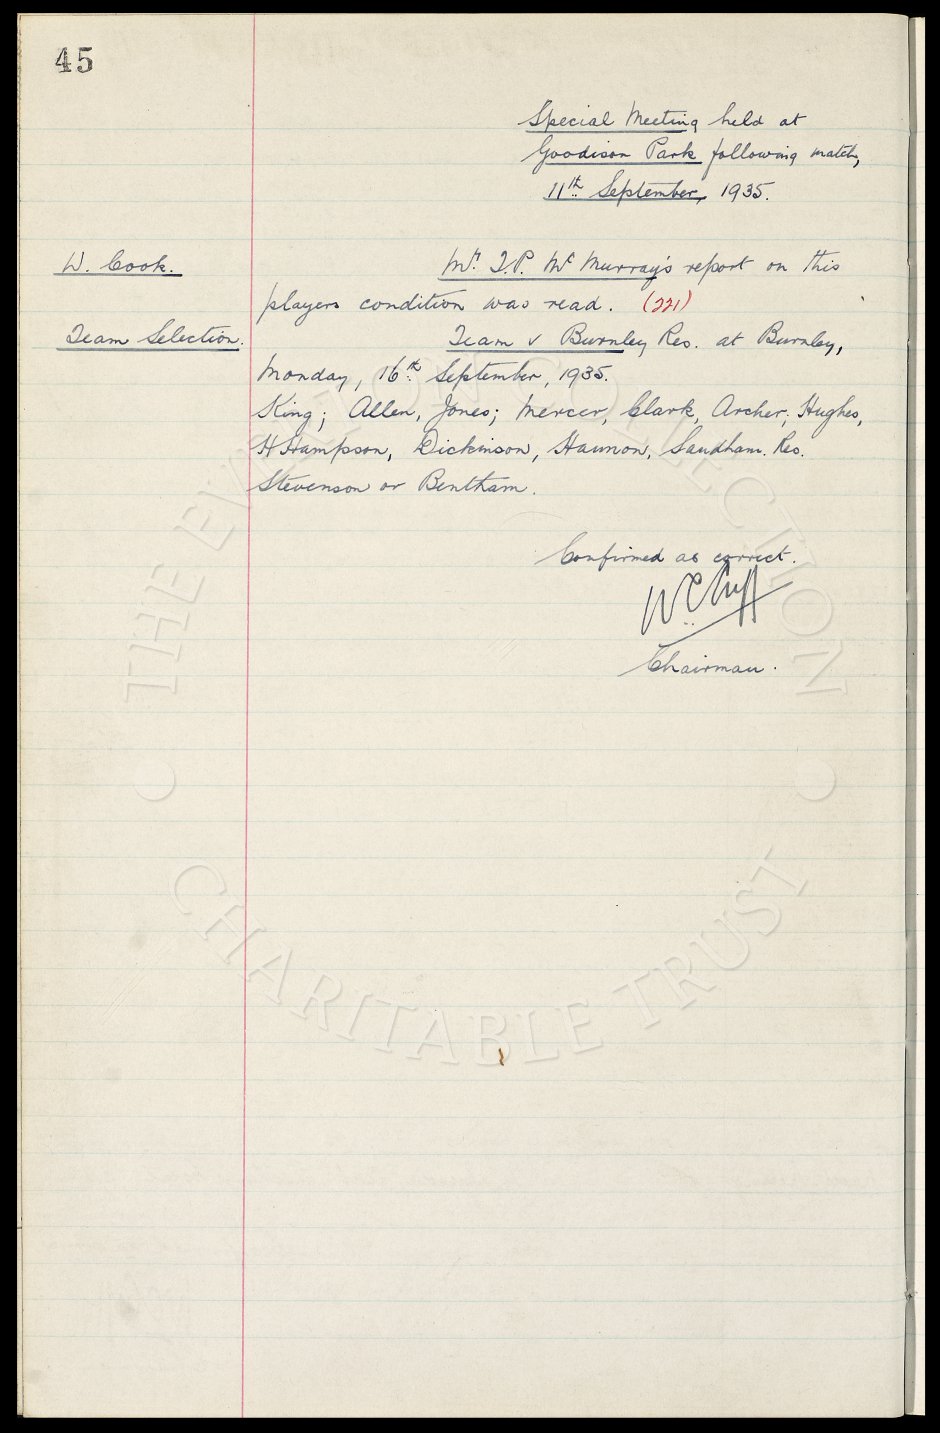 45
Special Meeting held at
Goodison Park following match,
11th September, 1935.
W. Cook.
Mr. T.P. McMurray's report on this
players condition was read. (221)
Team Selection.
Team v Burnley Res. at Burnley,
Monday, 16th September, 1935.
King; Allen, Jones; Mercer, Clark, Archer; Hughes,
H Hampson, Dickinson, Hannon, Sandham. Res.
Stevenson or Bentham.
Confirmed as correct.
W.C. Cuff
Chairman.
THE EVERTON COLLECTION
CHARITABLE TRUST